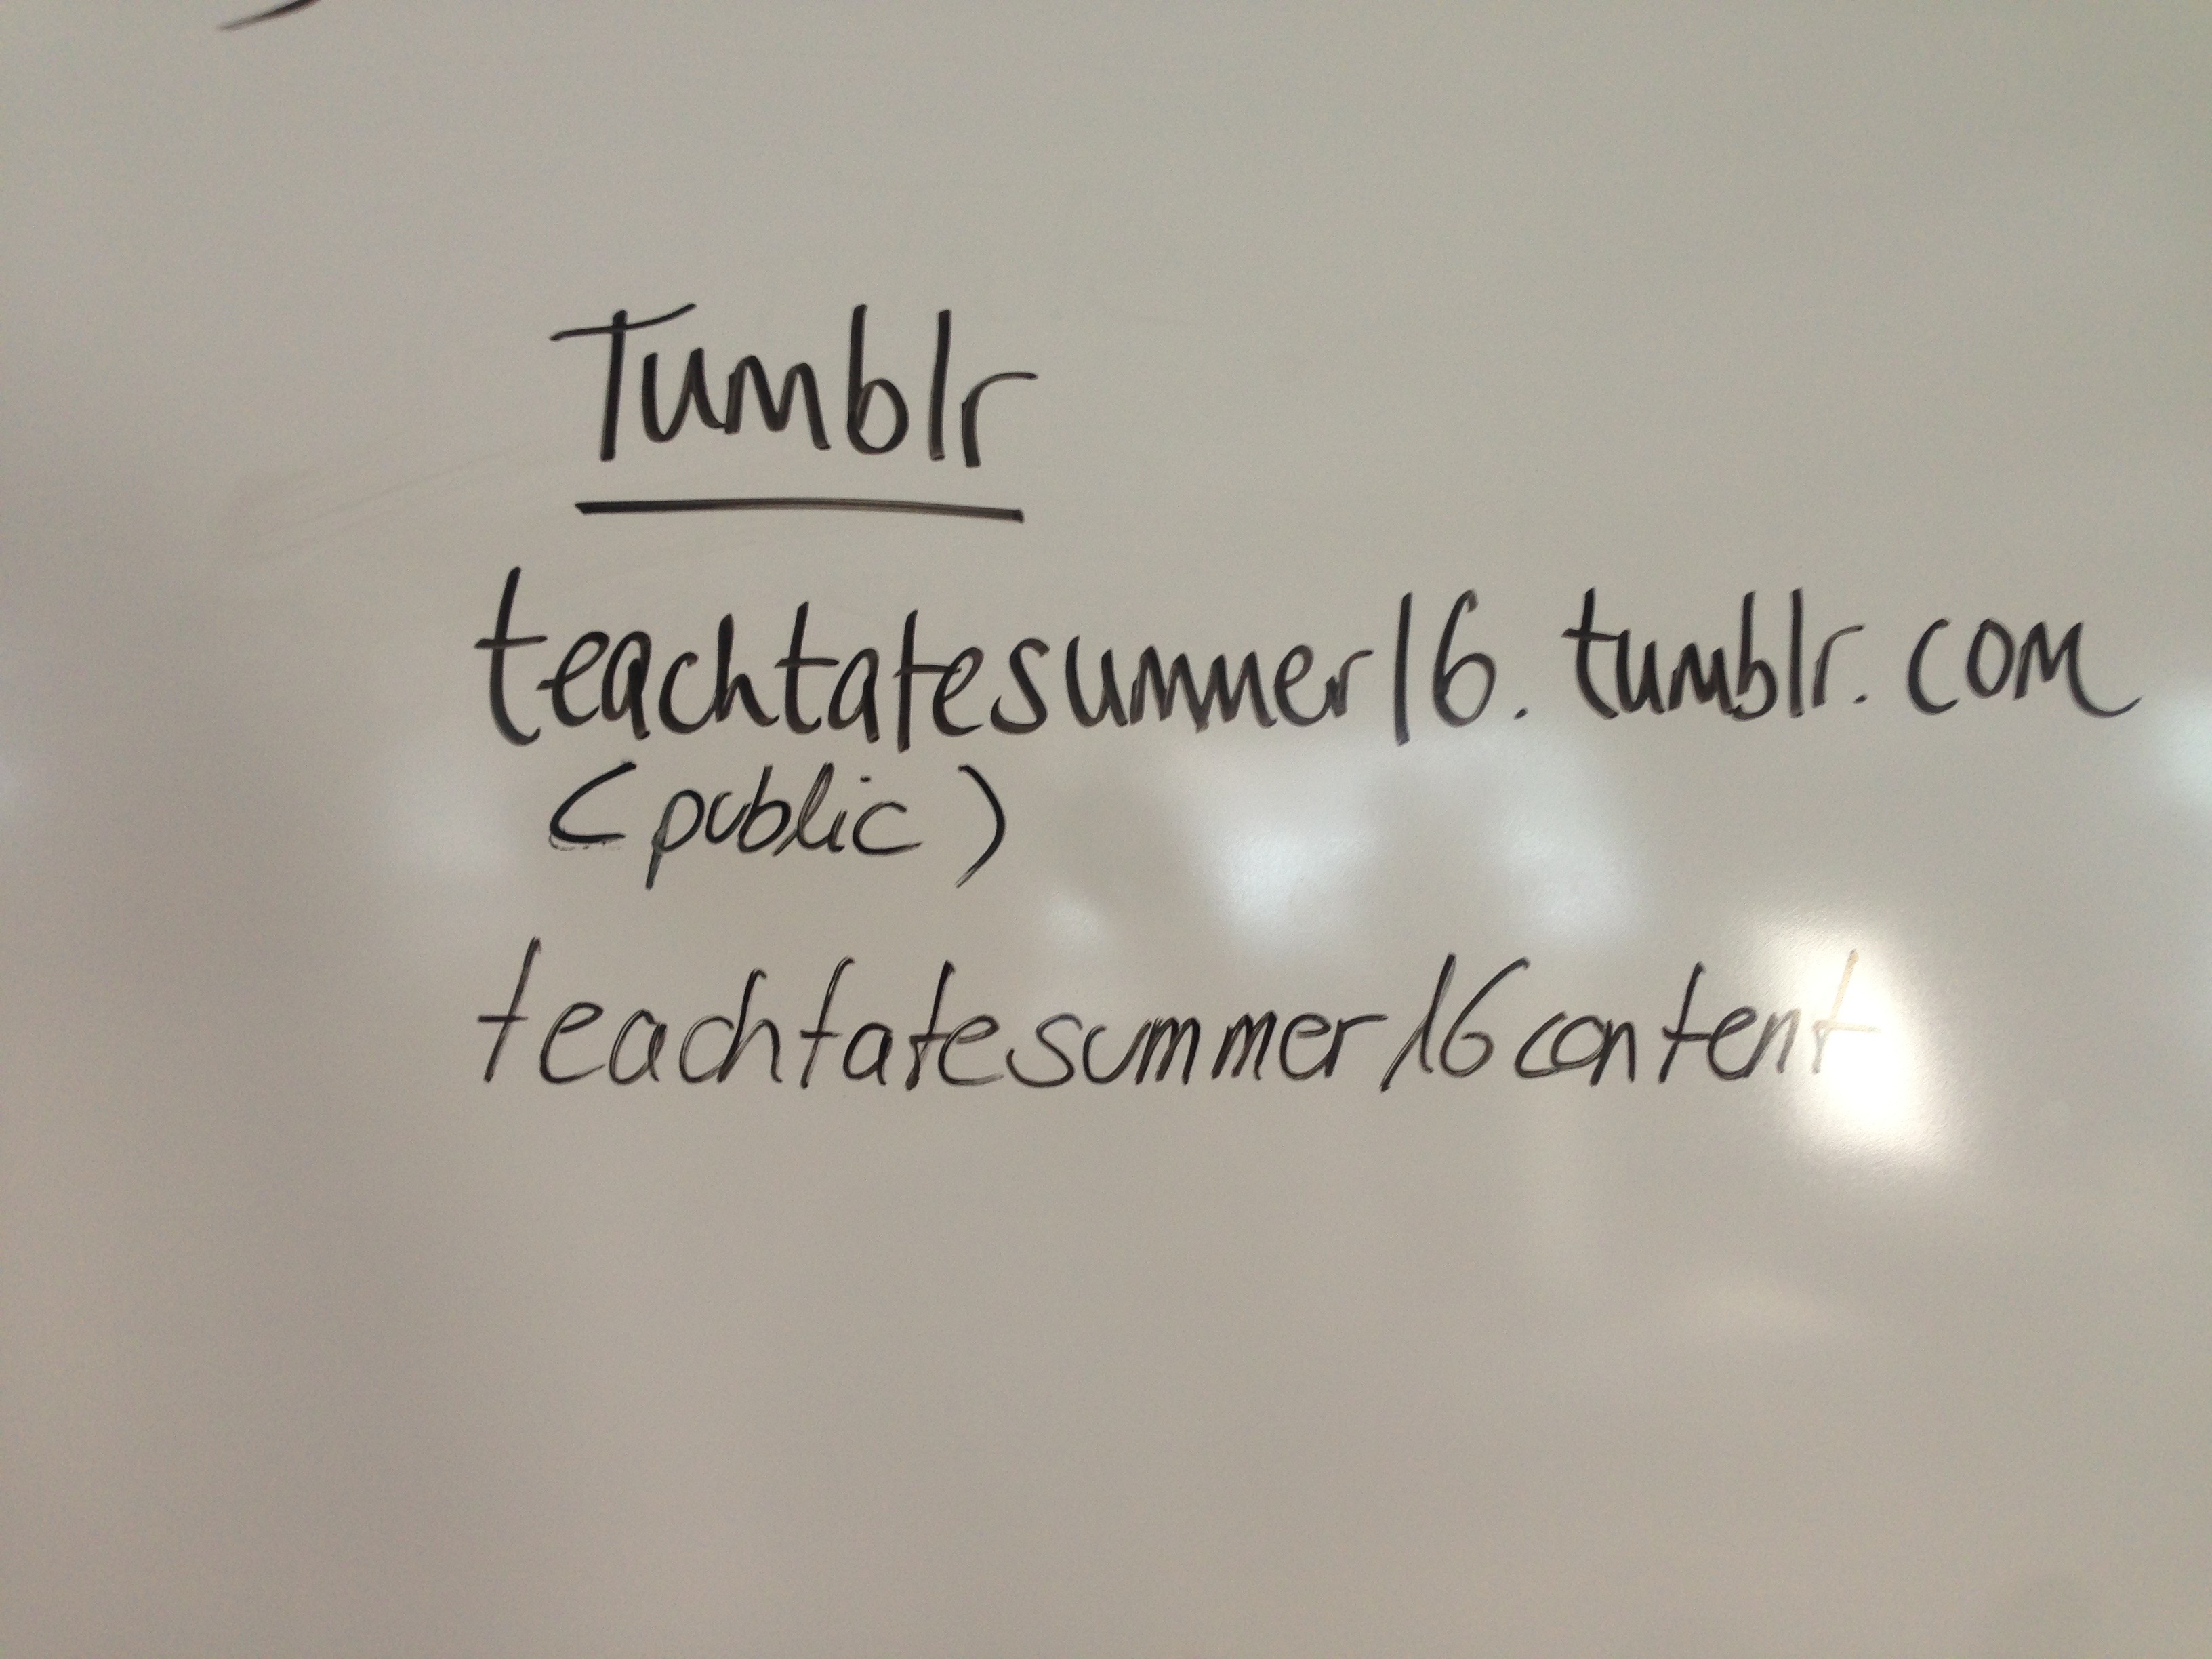 Tumblr
teachtatesummer16.tumblr.com
(public)
teachtatesummer16content